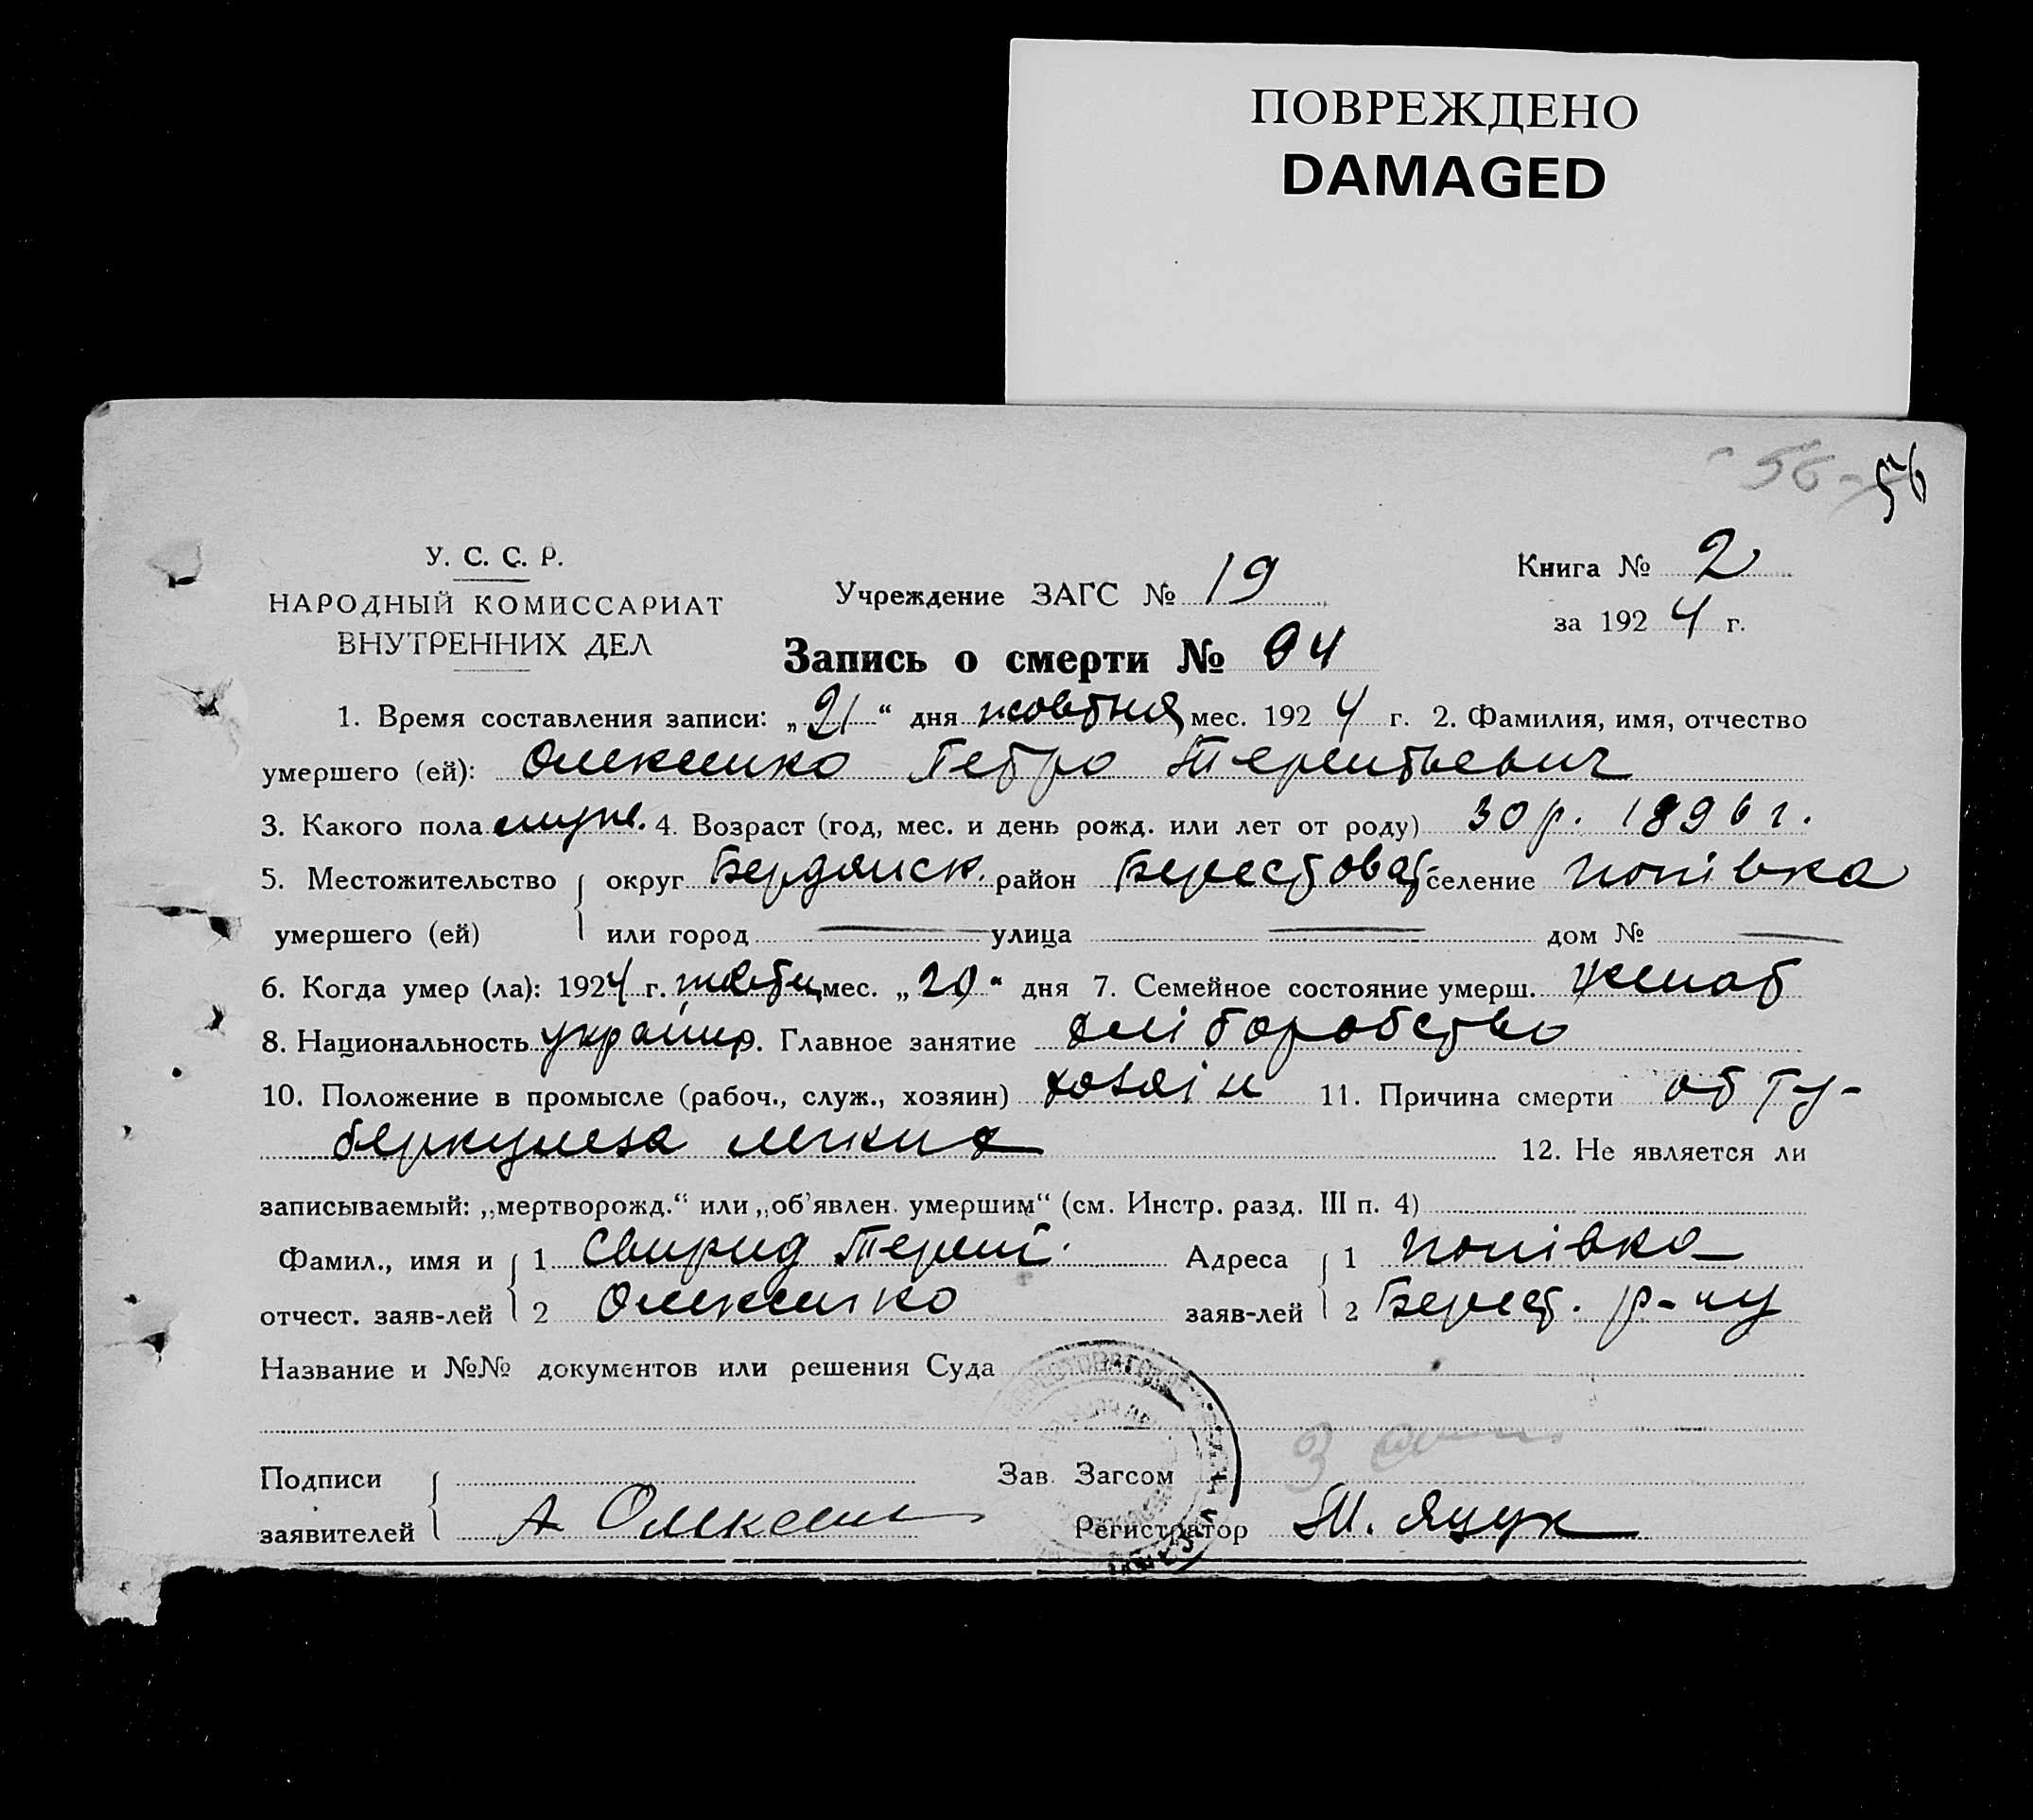 ПОВРЕЖДЕНО
DAMAGED
56 56
У. С. С. Р.
НАРОДНЫЙ КОМИССАРИАТ
ВНУТРЕННИХ ДЕЛ
Учреждение ЗАГС № 19
Книга № 2
за 1924 г.
Запись о смерти № 94
1. Время составления записи: „21“ дня жовтня мес. 1924 г. 2. Фамилия, имя, отчество
умершего (ей): Олексенко Петро Терентьевич
3. Какого пола муж. 4. Возраст (год, мес. и день рожд. или лет от роду) 30 р. 1896 г.
5. Местожительство округ Бердянск. район Берестоват. селение Попівка
умершего (ей) или город — улица — дом № —
6. Когда умер (ла): 1924 г. жовтн мес. „20“ дня 7. Семейное состояние умерш. женат
8. Национальность 9. Главное занятие хліборобство
10. Положение в промысле (рабоч., служ., хозяин) хозяін 11. Причина смерти от ту-
беркулеза легких 12. Не является ли
записываемый: „мертворожд.“ или „об'явлен. умершим“ (см. Инстр. разд. III п. 4)
Фамил., имя и 1 Свирид Терент. Адреса 1 Попівка
отчест. заяв-лей 2 Олексенко заяв-лей 2 Берест. р-ну
Название и №№ документов или решения Суда
Подписи Зав. Загсом
заявителей А Олексен Регистратор Яцук